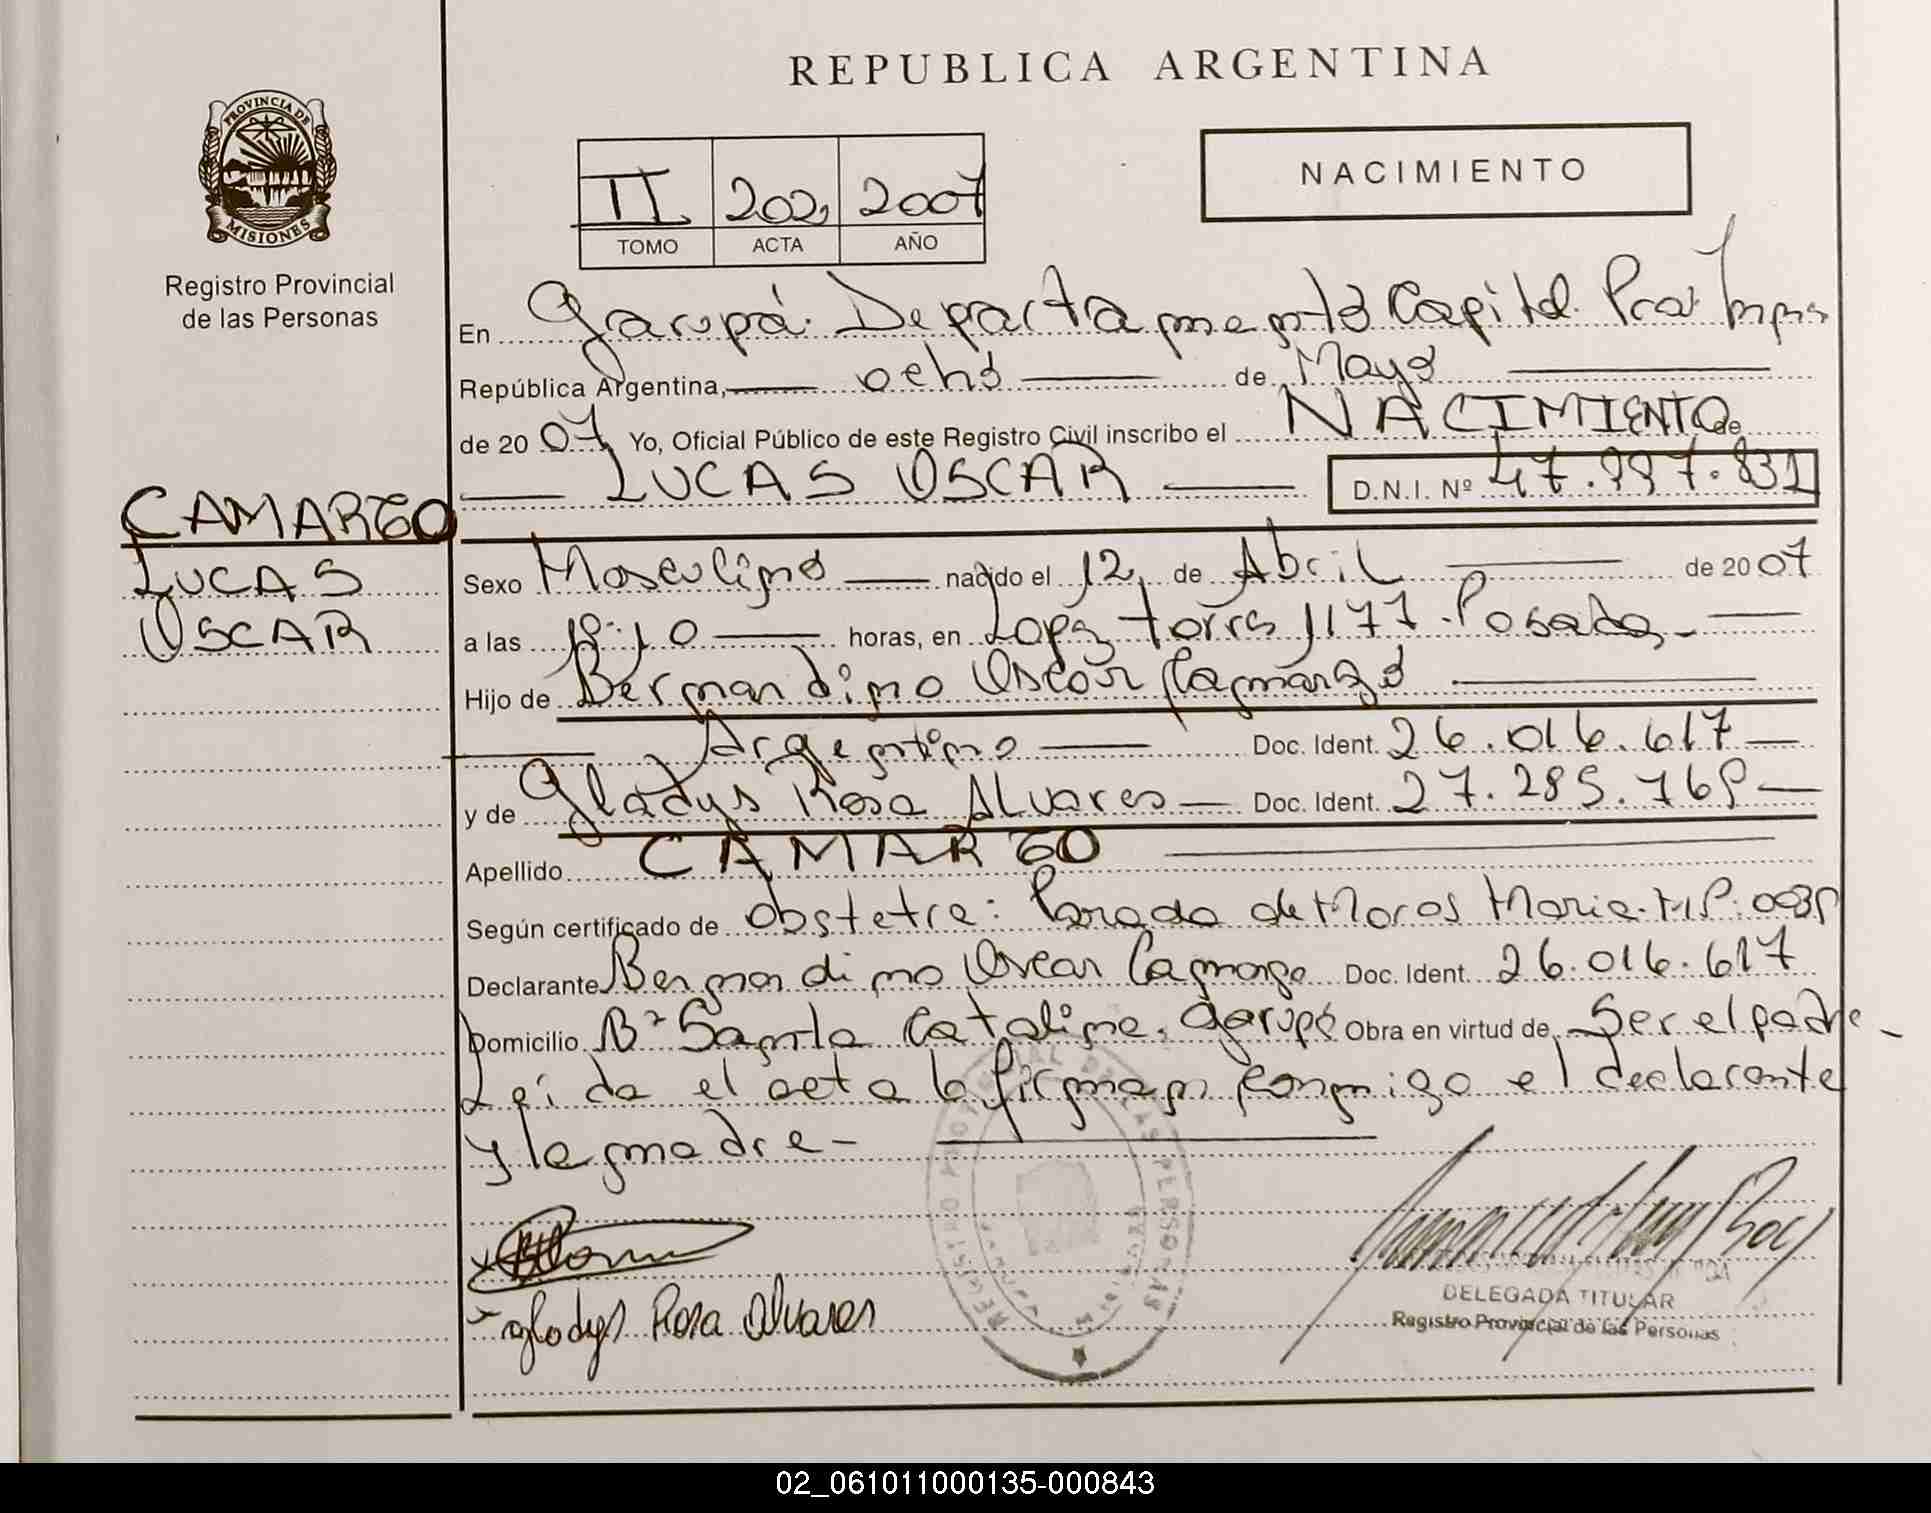 REPUBLICA ARGENTINA
PROVINCIA DE
MISIONES
Registro Provincial
de las Personas
II 202 2007
TOMO ACTA AÑO
NACIMIENTO
En Garupá. Departamento Capital.
República Argentina, ocho de Mayo
de 2007 Yo, Oficial Público de este Registro Civil inscribo el NACIMIENTO de
LUCAS OSCAR D.N.I. Nº 47.997.831
CAMARGO
LUCAS
OSCAR
Sexo Masculino nacido el 12 de Abril de 2007
a las horas, en Lopez torres 1177. Posadas
Hijo de Bernardino Oscar Camargo
Argentino Doc. Ident. 26.016.617
y de Gladys Rosa Alvares Doc. Ident. 27.285.769
Apellido CAMARGO
Según certificado de obstetra: de Moras Maria. M.P.
Declarante Bernardino Oscar Camargo Doc. Ident. 26.016.617
Domicilio Bº Santa Catalina. Garupá Obra en virtud de Ser el padre
Leida el acta la firman conmigo el declarante
y la madre
Gladys Rosa Alvares
REGISTRO PROVINCIAL DE LAS PERSONAS
DELEGADA TITULAR
Registro Provincial de las Personas
02_061011000135-000843